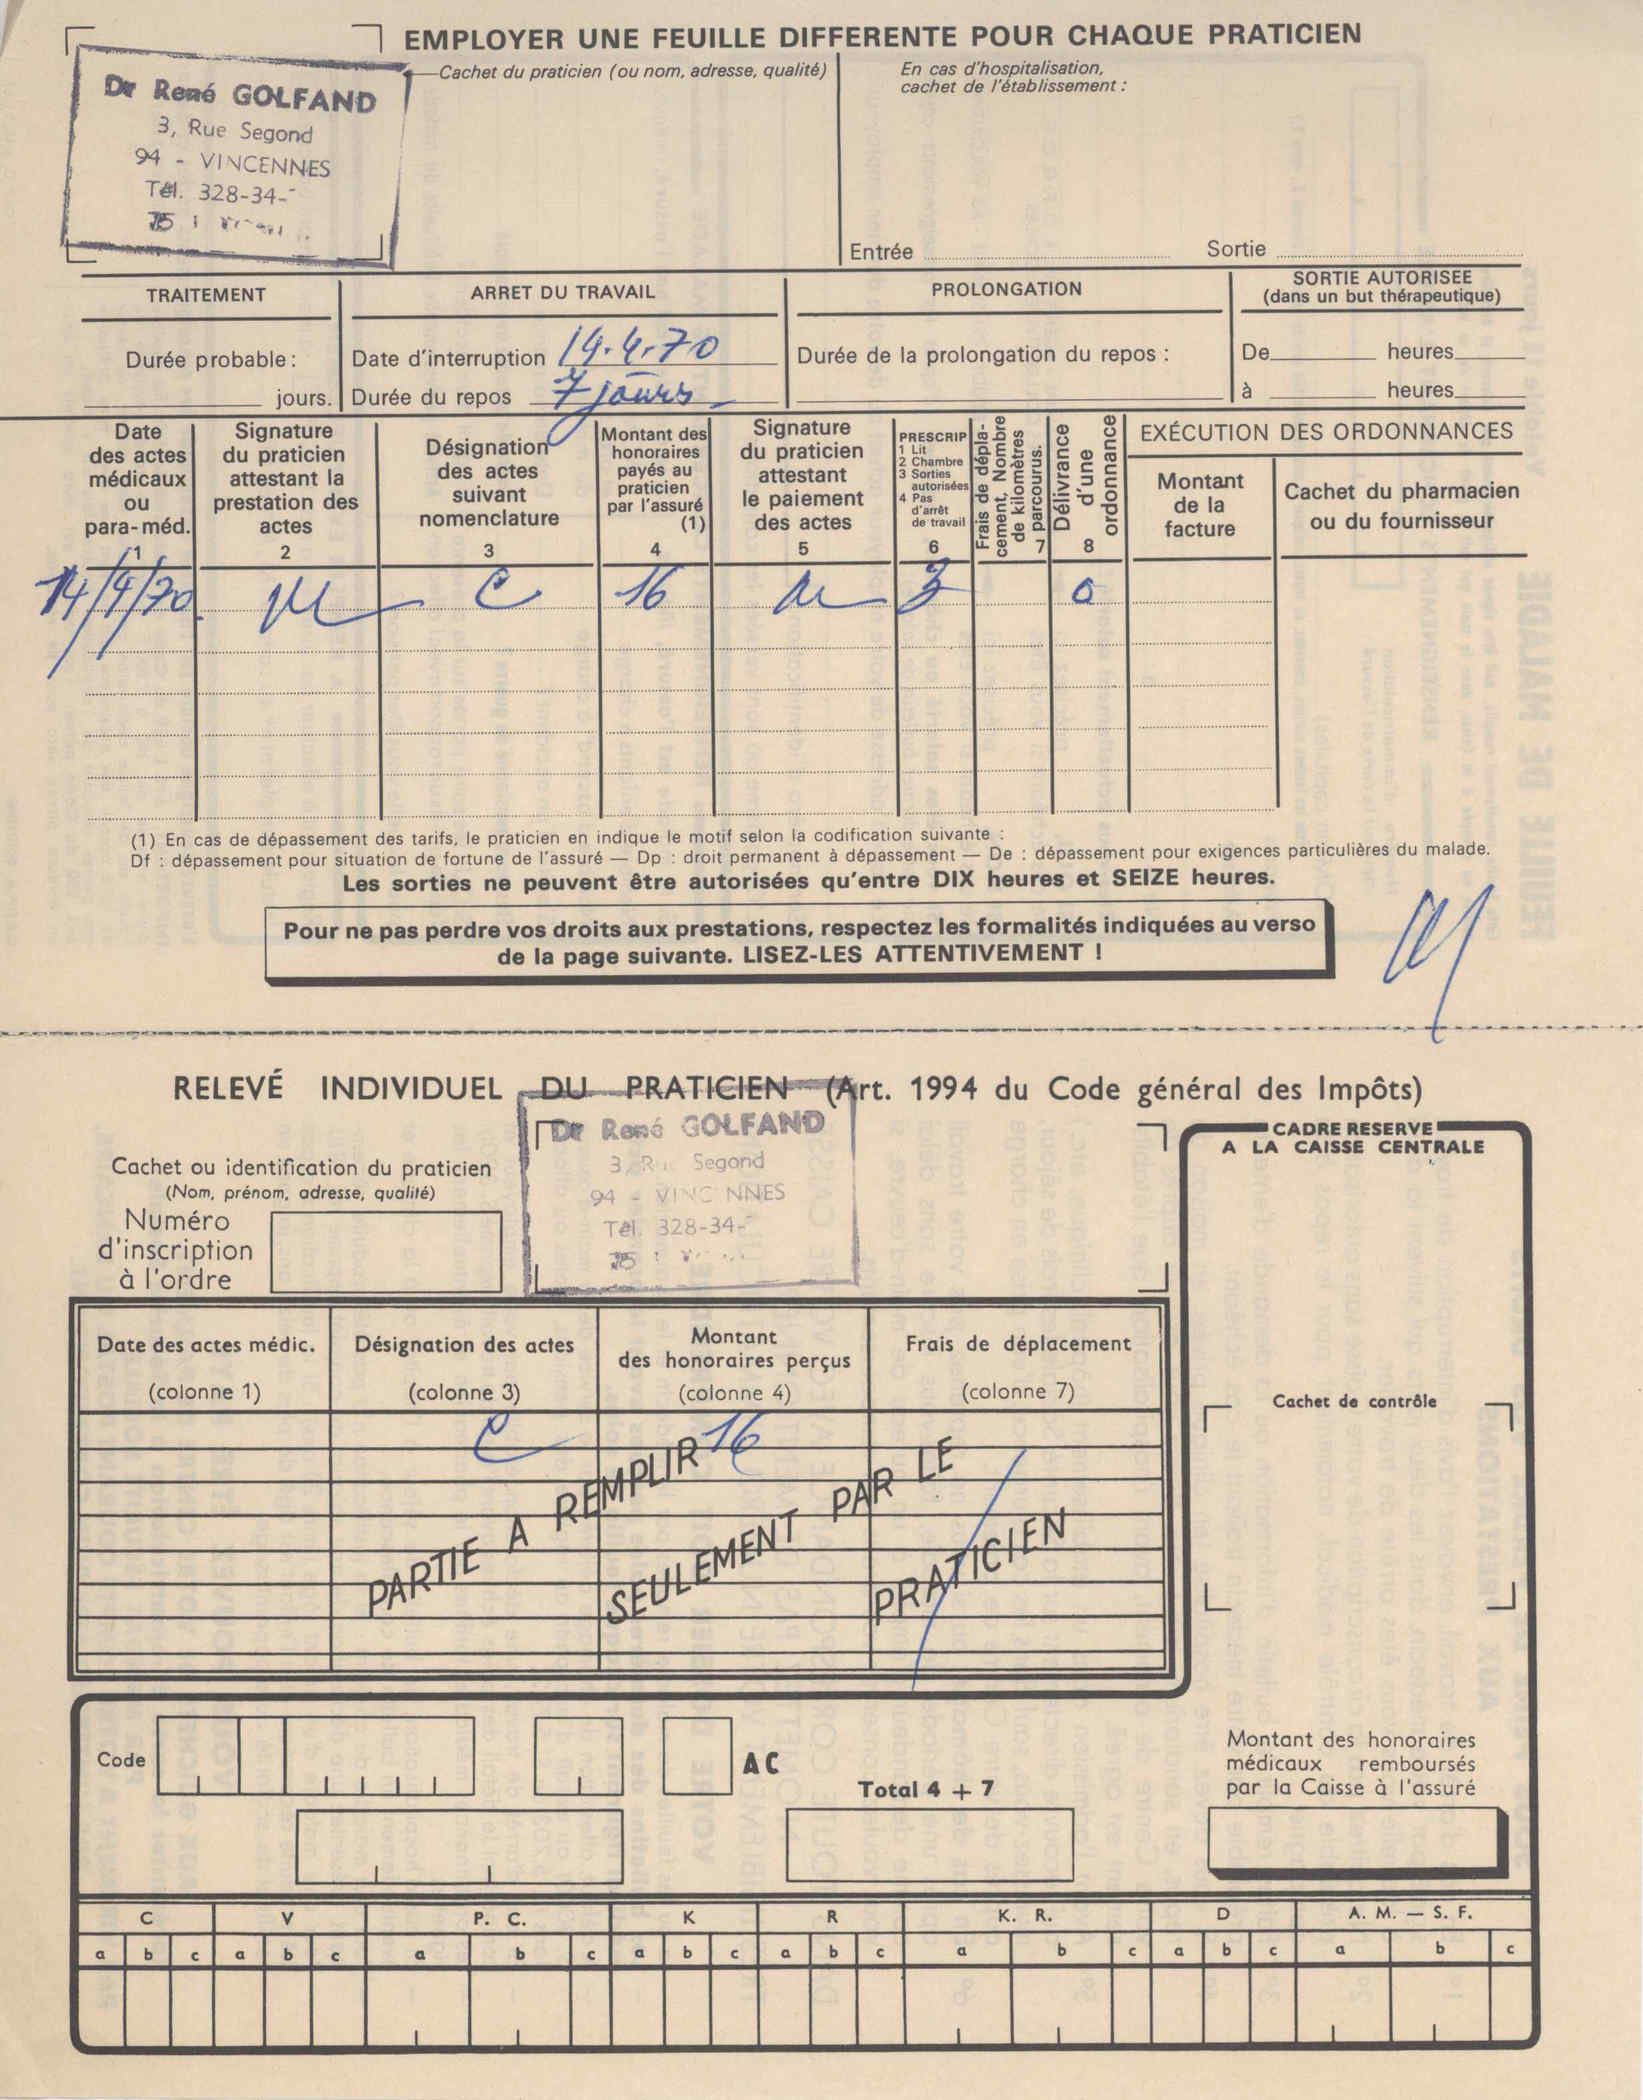 EMPLOYER UNE FEUILLE DIFFERENTE POUR CHAQUE PRATICIEN
Cachet du praticien (ou nom, adresse, qualité)
En cas d'hospitalisation,
cachet de l'établissement :
Dr René GOLFAND
3, Rue Segond
94 - VINCENNES
Tél. 328-34-
75
Entrée
Sortie
TRAITEMENT
ARRET DU TRAVAIL
PROLONGATION
SORTIE AUTORISEE
(dans un but thérapeutique)
Durée probable :
jours.
Date d'interruption 14.4.70
Durée du repos 7 jours
Durée de la prolongation du repos :
De heures
à heures
Date
des actes
médicaux
ou
para-méd.
1
Signature
du praticien
attestant la
prestation des
actes
2
Désignation
des actes
suivant
nomenclature
3
Montant des
honoraires
payés au
praticien
par l'assuré
(1)
4
Signature
du praticien
attestant
le paiement
des actes
5
PRESCRIP
1 Lit
2 Chambre
3 Sorties
autorisées
4 Pas
d'arrêt
de travail
6
Frais de dépla-
cement, Nombre
de kilomètres
parcourus.
7
Délivrance
d'une
ordonnance
8
EXÉCUTION DES ORDONNANCES
Montant
de la
facture
Cachet du pharmacien
ou du fournisseur
14/4/70 C 16 3 0
(1) En cas de dépassement des tarifs, le praticien en indique le motif selon la codification suivante :
Df : dépassement pour situation de fortune de l'assuré — Dp : droit permanent à dépassement — De : dépassement pour exigences particulières du malade.
Les sorties ne peuvent être autorisées qu'entre DIX heures et SEIZE heures.
Pour ne pas perdre vos droits aux prestations, respectez les formalités indiquées au verso
de la page suivante. LISEZ-LES ATTENTIVEMENT !
RELEVÉ INDIVIDUEL DU PRATICIEN (Art. 1994 du Code général des Impôts)
Cachet ou identification du praticien
(Nom, prénom, adresse, qualité)
Numéro
d'inscription
à l'ordre
Dr René GOLFAND
3, Ru Segond
94 - VINC NNES
Tél. 328-34-
75
CADRE RESERVE
A LA CAISSE CENTRALE
Date des actes médic.
(colonne 1)
Désignation des actes
(colonne 3)
Montant
des honoraires perçus
(colonne 4)
Frais de déplacement
(colonne 7)
C 16
PARTIE A REMPLIR
SEULEMENT PAR LE
PRATICIEN
Cachet de contrôle
Code
AC
Total 4 + 7
Montant des honoraires
médicaux remboursés
par la Caisse à l'assuré
C V P. C. K R K. R. D A. M. — S. F.
a b c a b c a b c a b c a b c a b c a b c a b c